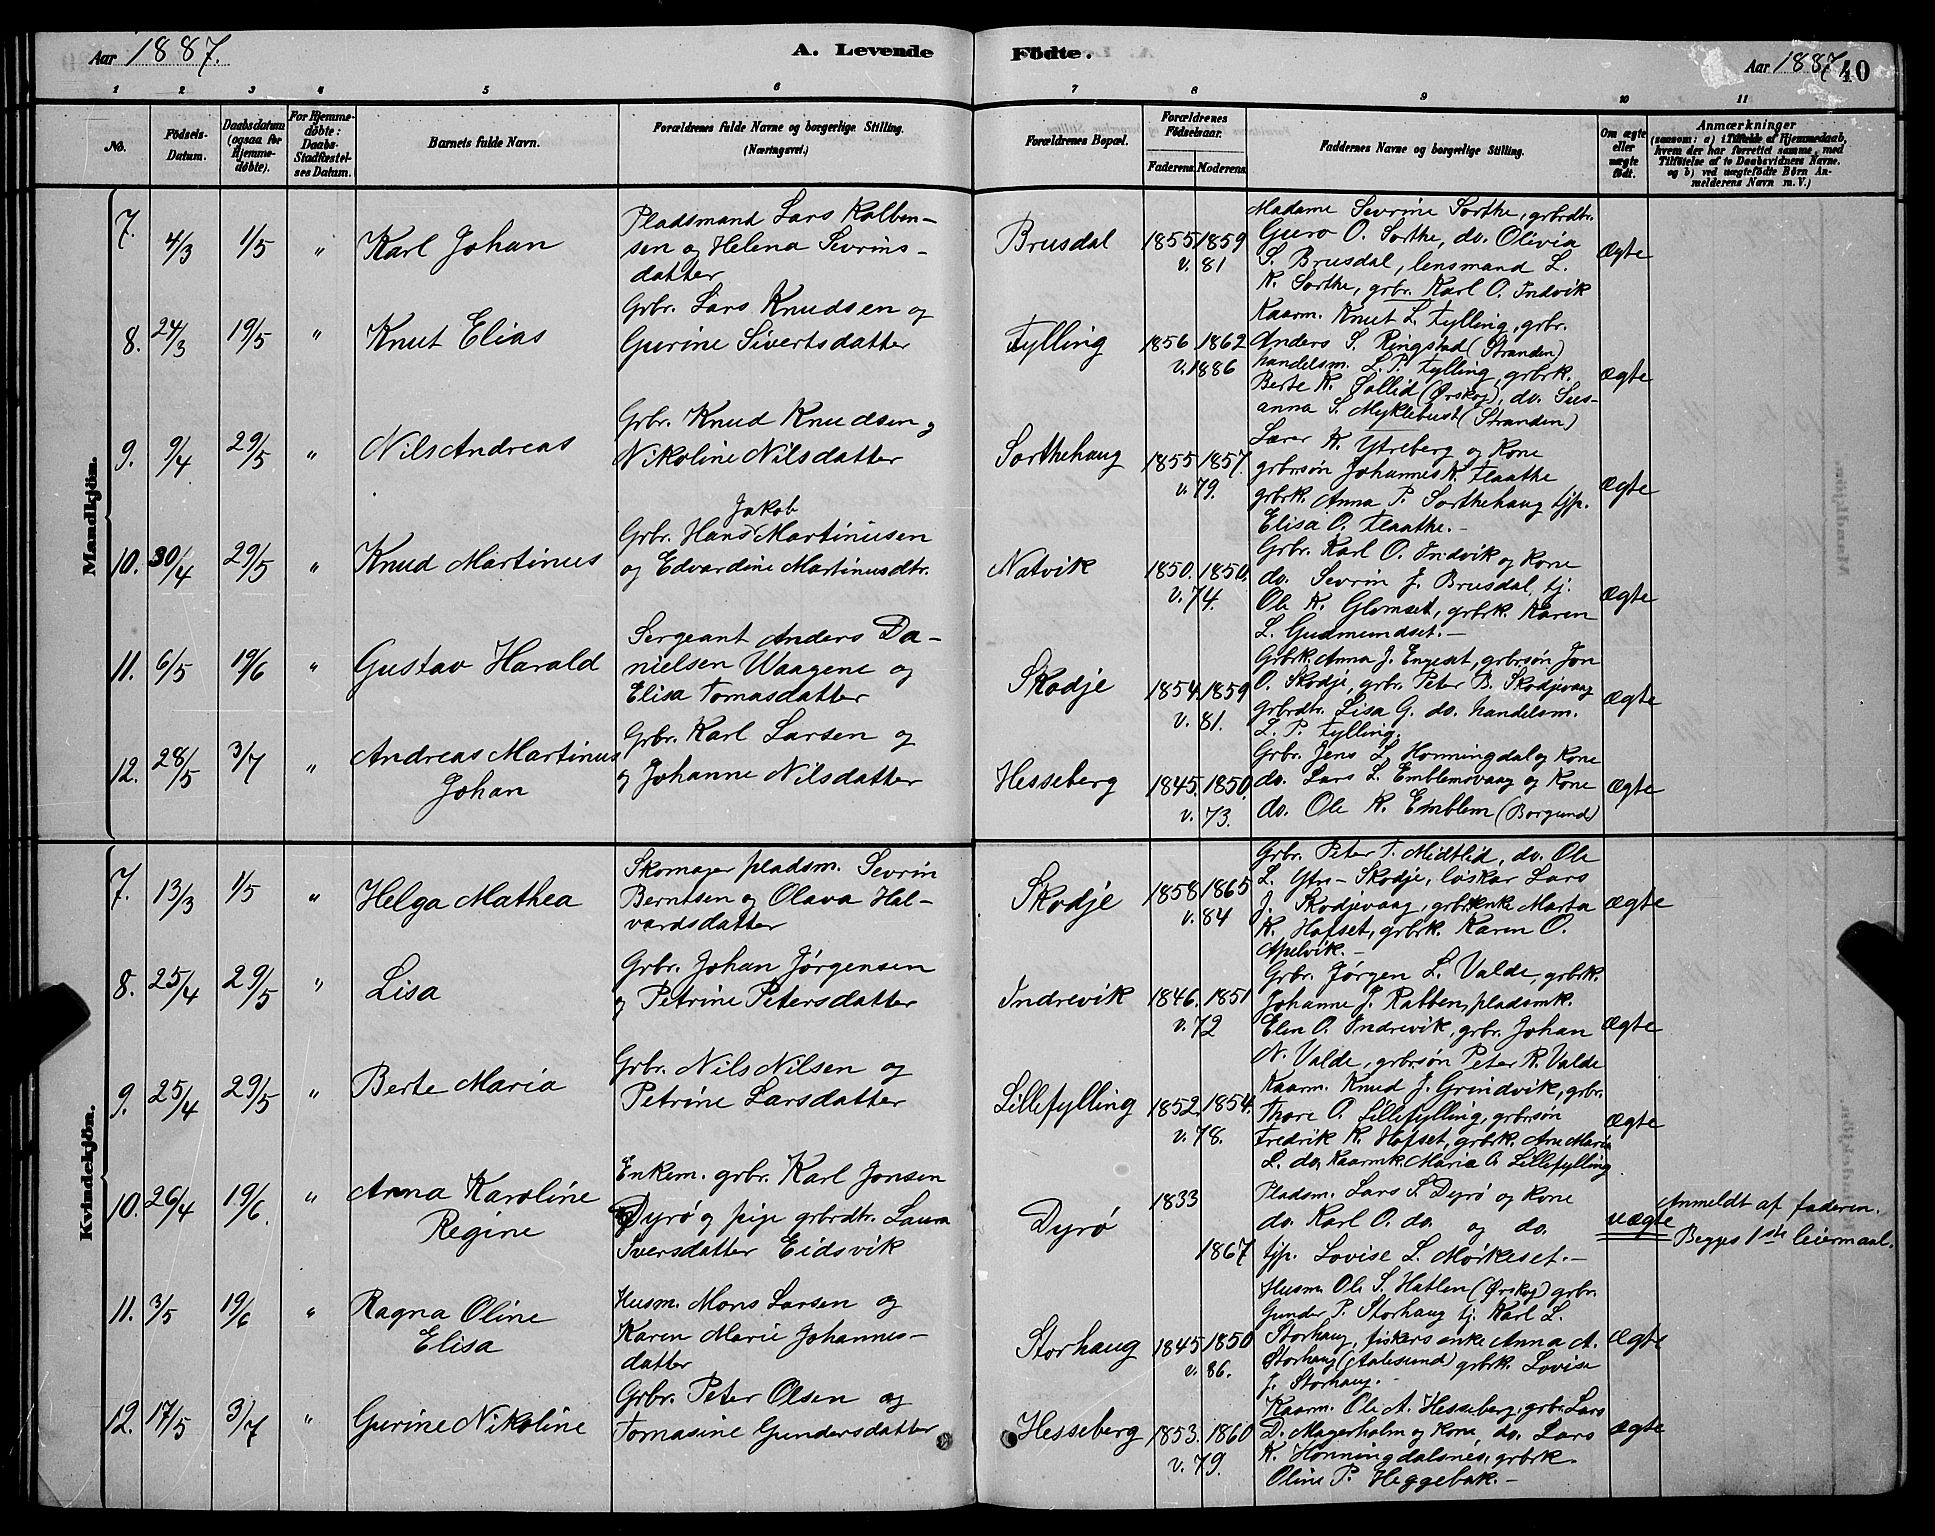 Aar 1887.
A. Levende
Födte.
Aar 1887
40
1 2 3 4 5 6 7 8 9 10 11
No.
Födsels-Datum.
Daabsdatum (ogsaa for Hjemmedöbte).
For Hjemmedöbte: Daabs-Stadfæstelses Datum.
Barnets fulde Navn.
Forældrenes fulde Navne og borgerlige Stilling. (Næringsvei.)
Forældrenes Bopæl.
Forældrenes Födselsaar.
Faderens. Moderens.
Faddernes Navne og borgerlige Stilling.
Om ægte eller uægte födt.
Anmærkninger
(saasom: a) i Tilfælde af Hjemmedaab, hvem der har forrettet samme, med Tilföielse af to Daabsvidners Navne. og b) ved uægtefödte Börn Anmelderens Navn m. V.)
Mandkjön.
7. 4/3 1/5 " Karl Johan
Pladsmand Lars Kolben-
sen og Helena Sevrins-
datter
Brusdal 1855 1859
v. 81
Madame Sevrine Sorthe, grbrdtr.
Guro O. Sorthe, do. Olivia
S. Brusdal, lensmand L.
K. Sorthe, grbr. Karl O. Indvik
Ægte
8. 24/3 19/5 " Knut Elias
Grbr. Lars Knudsen og
Gurine Sivertsdatter
Fylling 1856 1862
v. 1886
Kaarm. Knut L. Fylling, grbr.
Anders S. Ringstad (Stranden)
handelsm. L. P. Fylling, grbrk.
Berte K. Sollid (Ørskog), do. Sus-
anna S. Myklebust (Stranden)
Ægte
9. 9/4 29/5 " Nils Andreas
Grbr. Knud Knudsen og
Nikoline Nilsdatter
Sorthehaug 1855 1857.
v. 79.
Lærer K. Ytreberg og Kone
grbrsøn Johannes K. Flaathe
grbrk. Anna P. Sorthehaug tjp.
Elisa O. Flaathe.-
Ægte
10. 30/4 29/5 " Knud Martinus
Jakob
Grbr. Hans Martinusen
og Edvardine Martinusdtr.
Natvik 1850. 1850.
v. 74.
Grbr. Karl O. Indvik og Kone
do. Sevrin J. Brusdal, tj.
Ole K. Glomset, grbrk. Karen
L. Gudmundset.-
Ægte
11. 6/5 19/6 " Gustav Harald
Sergeant Anders Da-
nielsen Waagene og
Elisa Tomasdatter
Skodje 1854 1859
v. 81.
Grbrk. Anna J. Engeset, grbrsøn Jon
O. Skodje, grbr. Peter B. Skodjevaag
grbrdtr. Lisa G. do. handelsm.
L. P. Fylling.
Ægte
12. 28/5 3/7 " Andreas Martinus
Johan
Grbr. Karl Larsen og
og Johanne Nilsdatter
Hesseberg 1845. 1850.
v. 73.
Grbr. Jens L. Honningdal og Kone
do. Lars L. Emblemsvaag og Kone
do. Ole K. Emblem (Borgund)
Ægte
Kvindekjön.
7. 13/3 1/5 " Helga Mathea
Skomager pladsm. Sevrin
Berntsen og Olava Hal-
vardsdatter
Skodje 1858 1865
v. 84
Grbr. Peter T. Midtlid, do. Ole
L. Ytre-Skodje, løskar Lars
J. Skodjevaag, grbrenke Marta
K. Hofset, grbrk. Karen O.
Apelvik.-
Ægte
8. 25/4 29/5 " Lisa
Grbr. Johan Jørgensen
og Petrine Petersdatter
Indrevik 1846. 1851
v. 72
Grbr. Jørgen L. Valde, grbrk.
Johanne J. Rabben, pladsmk.
Elen O. Indrevik, grbr. Johan
N. Valde, grbrsøn Peter R. Valde
Ægte
9. 25/4 29/5 " Berte Maria
Grbr. Nils Nilsen og
Petrine Larsdatter
Lillefylling 1852. 1854.
v. 78.
Kaarm. Knud J. Grindvik, grbr.
Thore O. Lillefylling, grbrsøn
Fredrik K. Hofset, grbrk. Ane Maria
L. do, Kaarmk. Maria O. Lillefylling.
Ægte
10. 26/4 19/6. " Anna Karoline
Regine
Enkem. grbr. Karl Jonsen
Dyrø og pige grbrdtr. Laura
Iversdatter Eidsvik
Dyrø 1833
1867
Pladsm. Lars S. Dyrø og Kone
do. Karl O. do. og do.
tjp. Lovise L. Mørkeset.-
uægte
Anmeldt af faderen.
Begges 1ste leiermaal.
11. 3/5 19/6 " Ragna Oline
Elisa
Husm. Mons Larsen og
Karen Marie Johannes-
datter
Storhaug 1845 1850
v. 86.
Husm. Ole S. Hatlen (Ørskog) grbr.
Gunder P. Storhaug tj. Karl L.
Storhaug, fiskers enke Anna A.
Storhaug (Aalesund) grbrk. Lovise
J. Storhaug.-
Ægte
12. 17/5 3/7 " Gurine Nikoline
Grbr. Peter Olsen og
Tomasine Gundersdatter
Hesseberg 1853. 1860
v. 79.
Kaarm. Ole A. Hesseberg, grbr. Lars
D. Magerholm og Kone, do. Lars
K. Honningdalsnes, grbrk.
Oline P. Heggebak.-
Ægte